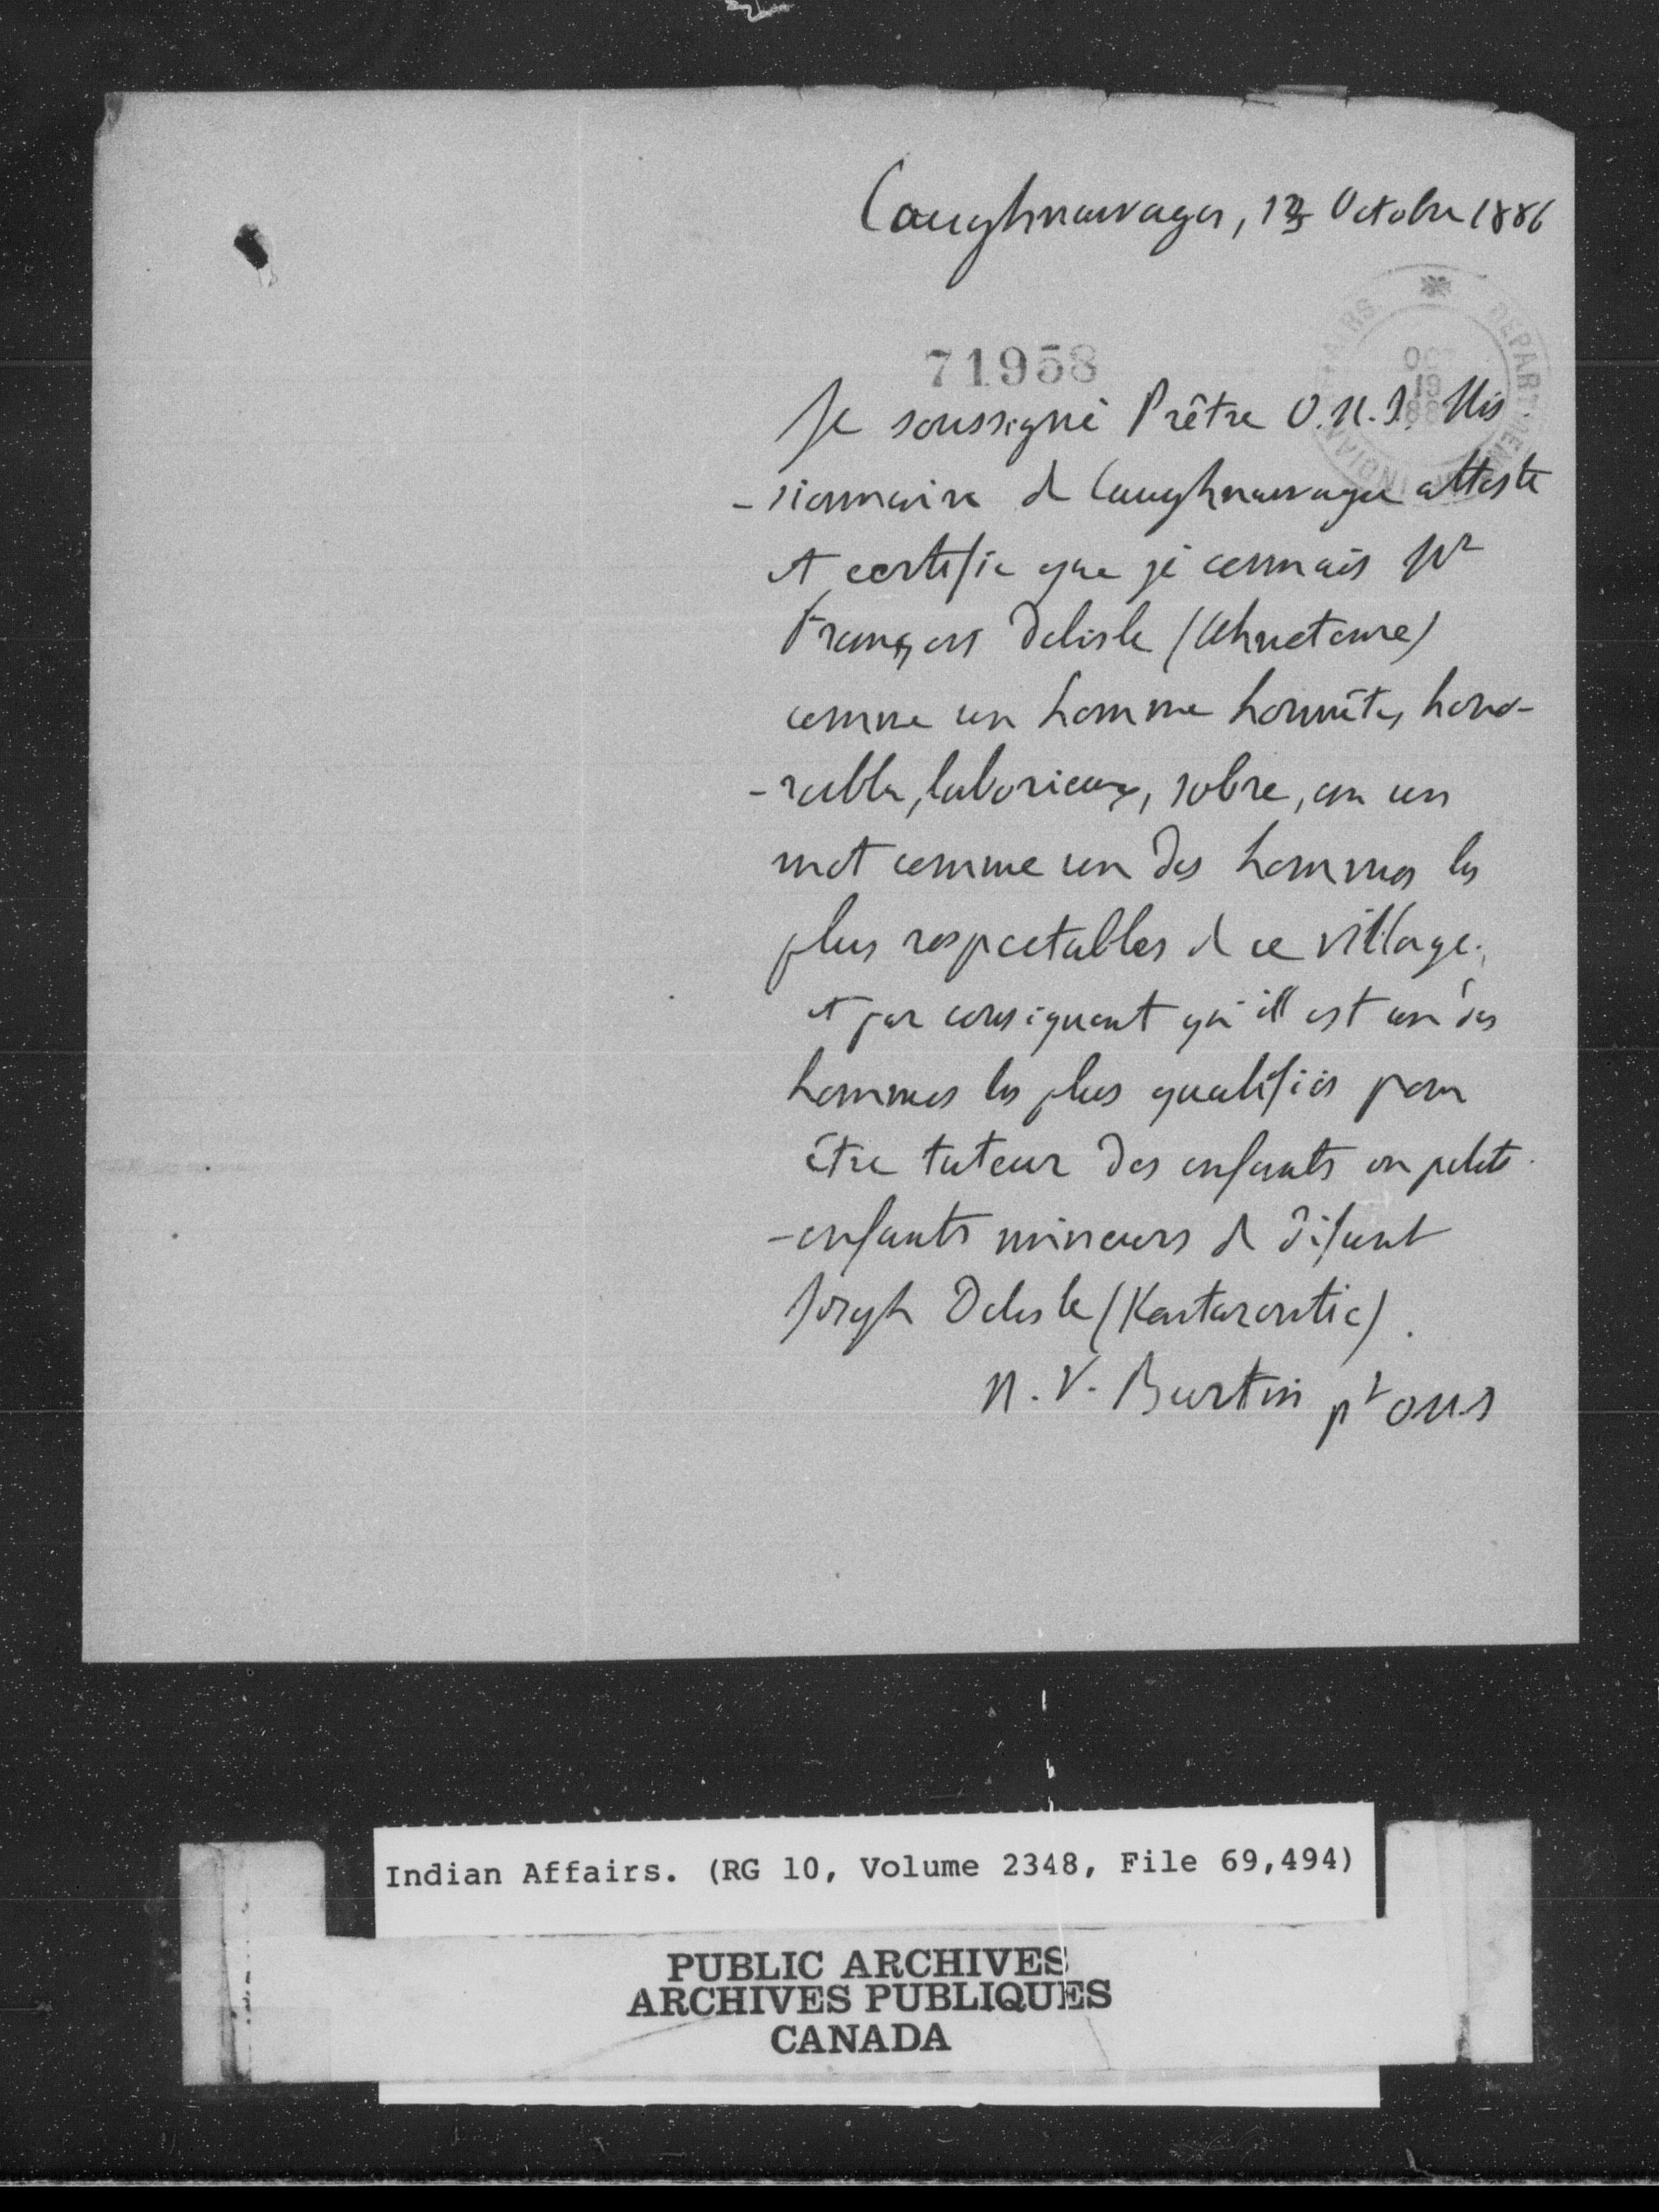 Caughnawaga, 13 Octobre 1886
71958
DEPARTMENT INDIAN AFFAIRS
OCT
19
Je soussigné Prêtre O.M.I. Mis
-sionnaire de Caughnawaga atteste
et certifie que je connais Mr
François Delisle (
comme un homme honnête, hono-
-rable, laborieux, sobre, en un
mot comme un des hommes les
plus respectables de ce village,
et par conséquent qu'il est un des
hommes les plus qualifiés pour
être tuteur des enfants ou petits
-enfants mineurs de défunt
Joseph Delisle (Kentarontie).
N. V. Burtin ptr OMI
Indian Affairs. (RG 10, Volume 2348, File 69,494)
PUBLIC ARCHIVES
ARCHIVES PUBLIQUES
CANADA